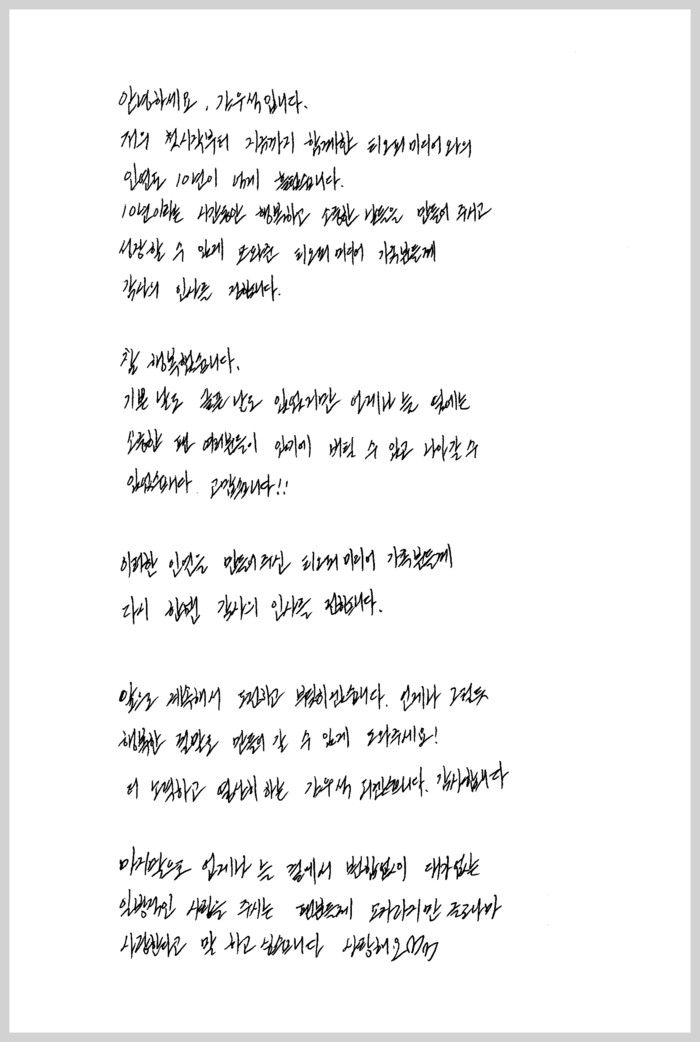 안녕하세요, 강우석입니다.
저의 첫시작부터 지금까지 함께한 티오피미디어와의
인연도 10년이 넘게 흘렀습니다.
10년이라는 시간동안 행복하고 소중한 날들을 만들어 주시고
성장할 수 있게 도와준 티오피미디어 가족분들께
감사의 인사를 전합니다.
참 행복했습니다.
기쁜 날도 슬픈 날도 있었지만 언제나 늘 옆에는
소중한 팬 여러분들이 있기에 버틸 수 있고 나아갈 수
있었습니다. 고맙습니다!!
이러한 인연을 만들어주신 티오피미디어 가족분들께
다시 한번 감사의 인사를 전합니다.
앞으로 계속해서 도전하고 부딪히겠습니다. 언제나 그렇듯
행복한 결말로 만들어 갈 수 있게 도와주세요!
더 노력하고 열심히 하는 강우석 되겠습니다. 감사합니다
마지막으로 언제나 늘 곁에서 변함없이 대가없는
일방적인 사랑을 주시는 팬분들께 모자라지만 조그나마
사랑한다고 말 하고 싶습니다 사랑해요